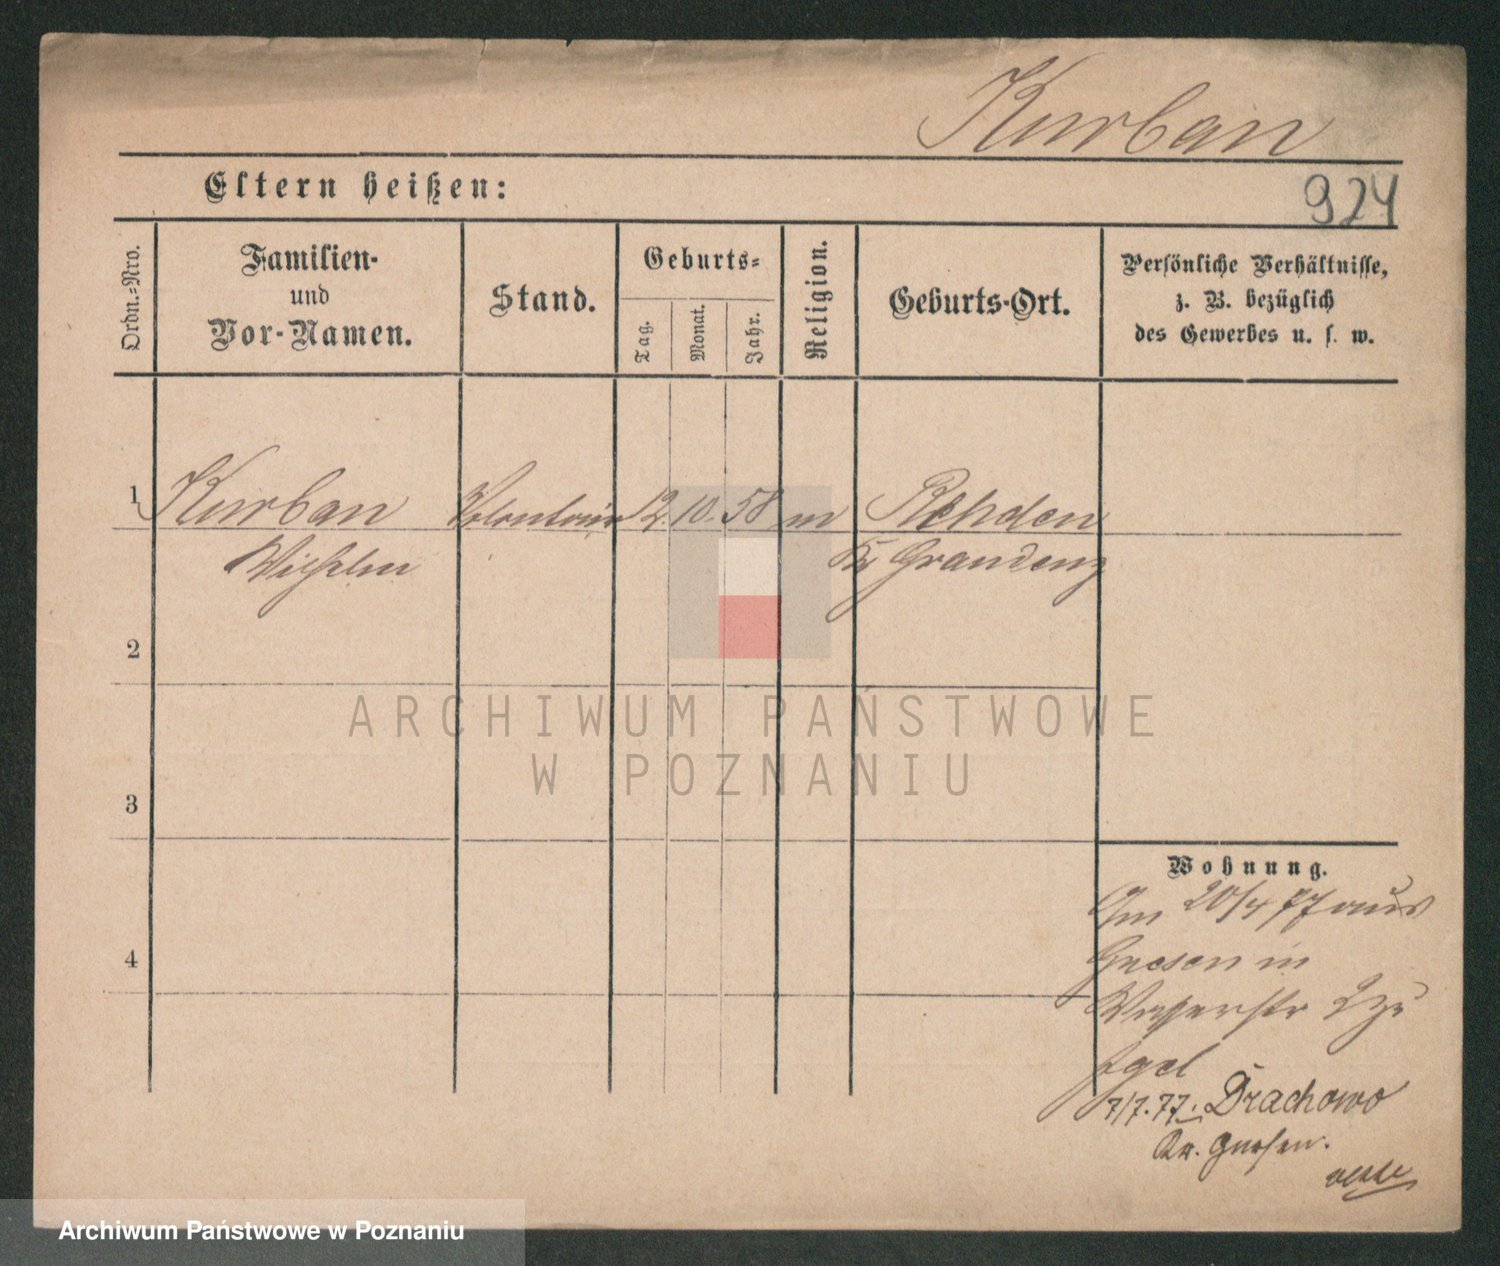 Kurban
Eltern heißen:
924
Ordn.-Nro.
Familien-
und
Vor-Namen.
Stand.
Geburts-
Tag.
Monat.
Jahr.
Religion.
Geburts-Ort.
Persönliche Verhältnisse,
z. B. bezüglich
des Gewerbes u. s. w.
1 Kurban Volontair 12. 10. 58 m Rehden
Wilhelm Kr Graudenz
2
3
4
ARCHIWUM PAŃSTWOWE
W POZNANIU
Wohnung.
Am 20/4 77 aus
Gnesen in
Wasserstr 2 zu
7/7. 77. Drachowo
Kr. Gnesen.
Archiwum Państwowe w Poznaniu